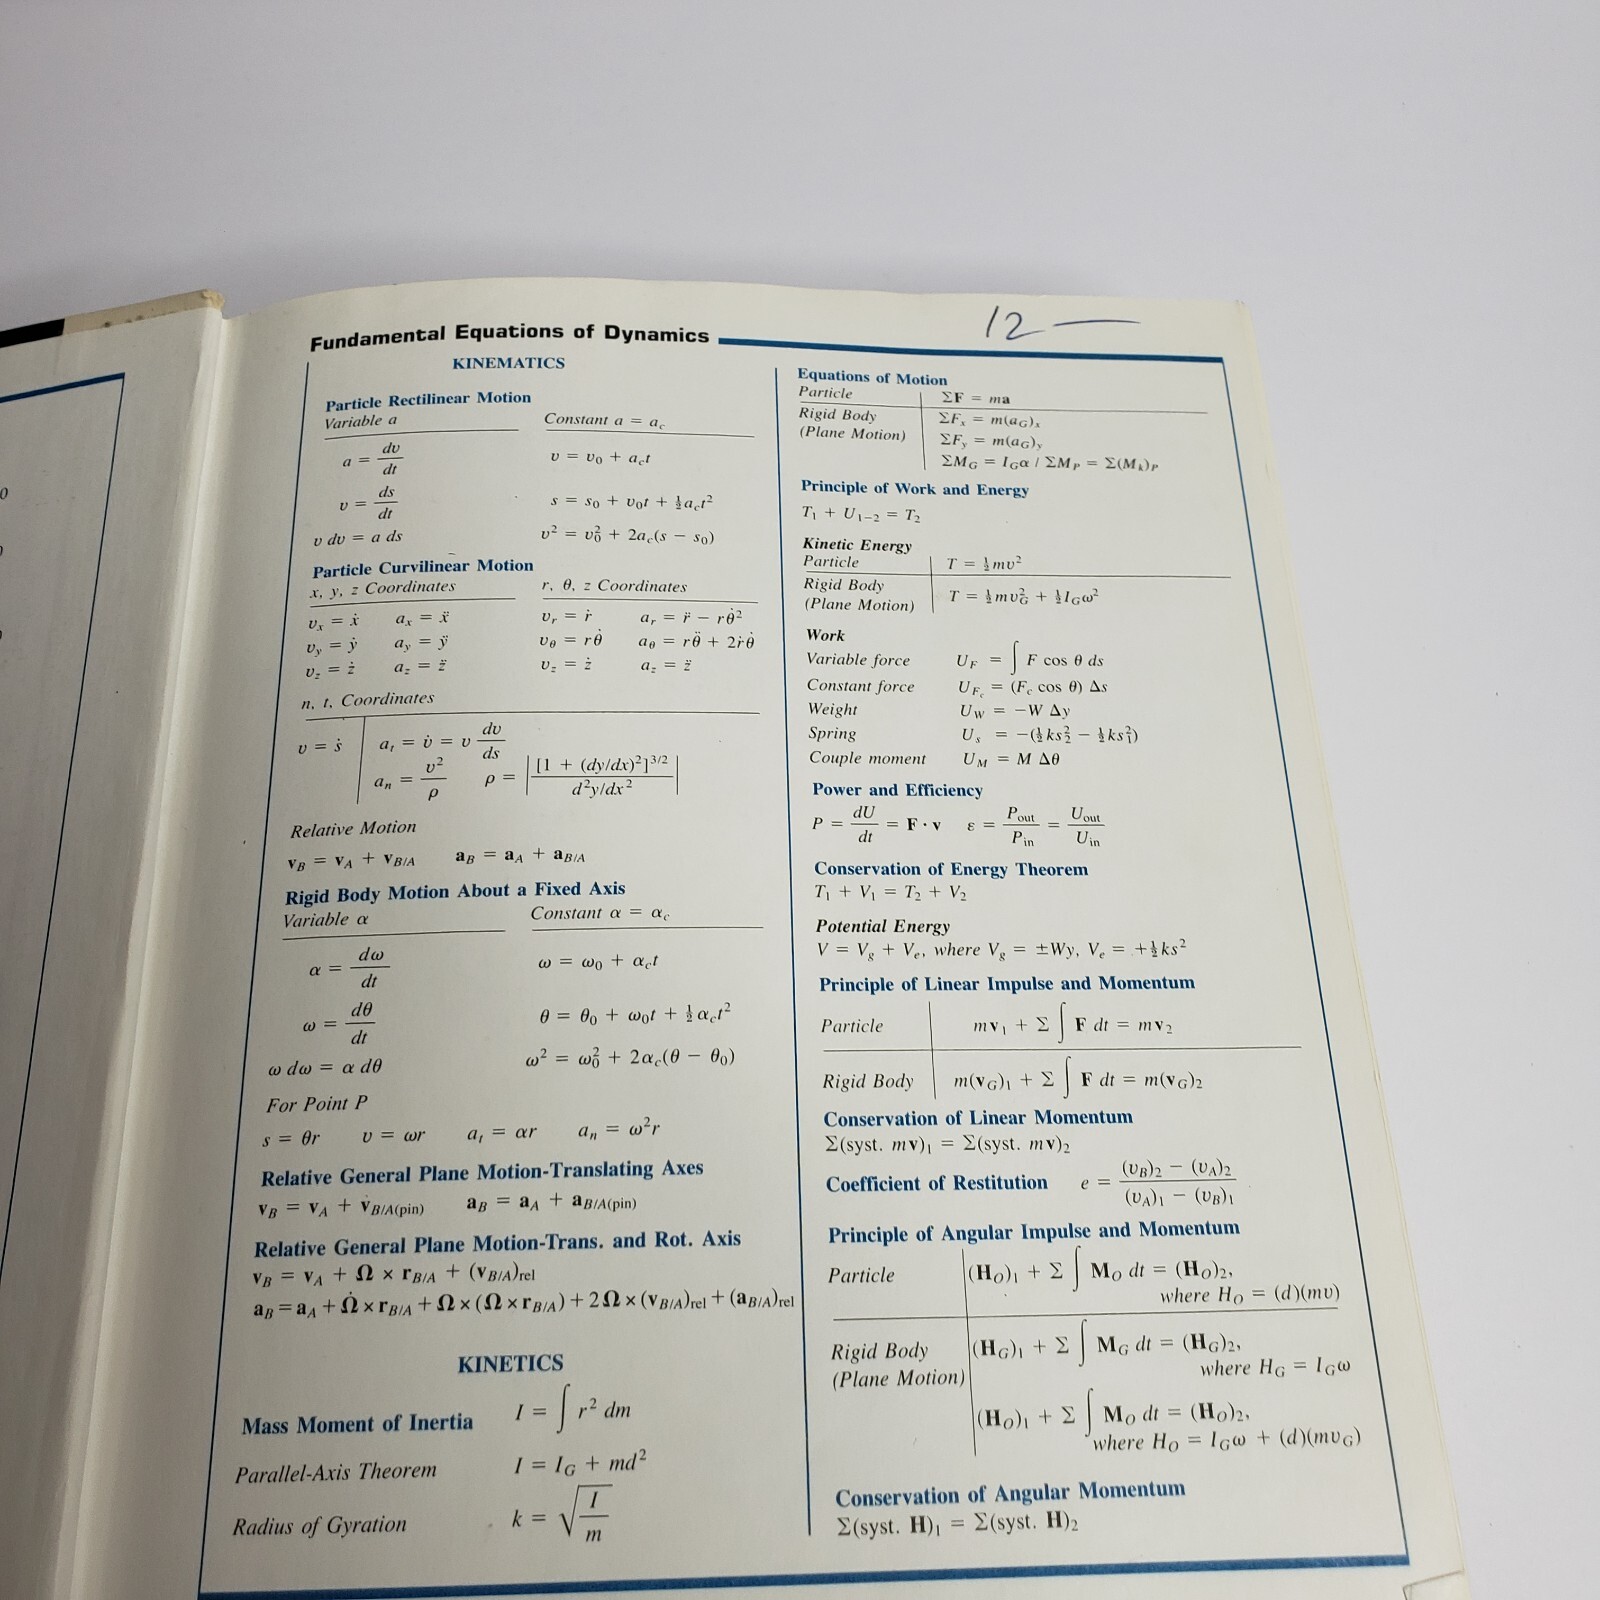 12 —
Fundamental Equations of Dynamics
KINEMATICS
Particle Rectilinear Motion
Variable a    Constant a = a_c
a = dv/dt    v = v₀ + a_c t
v = ds/dt    s = s₀ + v₀t + ½a_c t²
v dv = a ds    v² = v₀² + 2a_c(s − s₀)
Particle Curvilinear Motion
x, y, z Coordinates    r, θ, z Coordinates
v_x = ẋ    a_x = ẍ    v_r = ṙ    a_r = r̈ − rθ̇²
v_y = ẏ    a_y = ÿ    v_θ = rθ̇    a_θ = rθ̈ + 2ṙθ̇
v_z = ż    a_z = z̈    v_z = ż    a_z = z̈
n, t, Coordinates
v = ṡ    a_t = v̇ = v dv/ds
a_n = v²/ρ    ρ = |[1 + (dy/dx)²]^3/2 / d²y/dx²|
Relative Motion
v_B = v_A + v_B/A    a_B = a_A + a_B/A
Rigid Body Motion About a Fixed Axis
Variable α    Constant α = α_c
α = dω/dt    ω = ω₀ + α_c t
ω = dθ/dt    θ = θ₀ + ω₀t + ½α_c t²
ω dω = α dθ    ω² = ω₀² + 2α_c(θ − θ₀)
For Point P
s = θr    v = ωr    a_t = αr    a_n = ω²r
Relative General Plane Motion-Translating Axes
v_B = v_A + v_B/A(pin)    a_B = a_A + a_B/A(pin)
Relative General Plane Motion-Trans. and Rot. Axis
v_B = v_A + Ω × r_B/A + (v_B/A)_rel
a_B = a_A + Ω̇ × r_B/A + Ω × (Ω × r_B/A) + 2Ω × (v_B/A)_rel + (a_B/A)_rel
KINETICS
Mass Moment of Inertia    I = ∫ r² dm
Parallel-Axis Theorem    I = I_G + md²
Radius of Gyration    k = √(I/m)
Equations of Motion
Particle    ΣF = ma
Rigid Body    ΣF_x = m(a_G)_x
(Plane Motion)    ΣF_y = m(a_G)_y
ΣM_G = I_G α / ΣM_P = Σ(M_k)_P
Principle of Work and Energy
T₁ + U₁₋₂ = T₂
Kinetic Energy
Particle    T = ½mv²
Rigid Body
(Plane Motion)    T = ½mv_G² + ½I_G ω²
Work
Variable force    U_F = ∫ F cos θ ds
Constant force    U_F_c = (F_c cos θ) Δs
Weight    U_W = −W Δy
Spring    U_s = −(½ks₂² − ½ks₁²)
Couple moment    U_M = M Δθ
Power and Efficiency
P = dU/dt = F · v    ε = P_out/P_in = U_out/U_in
Conservation of Energy Theorem
T₁ + V₁ = T₂ + V₂
Potential Energy
V = V_g + V_e, where V_g = ±Wy, V_e = +½ks²
Principle of Linear Impulse and Momentum
Particle    mv₁ + Σ ∫ F dt = mv₂
Rigid Body    m(v_G)₁ + Σ ∫ F dt = m(v_G)₂
Conservation of Linear Momentum
Σ(syst. mv)₁ = Σ(syst. mv)₂
Coefficient of Restitution    e = (v_B)₂ − (v_A)₂ / (v_A)₁ − (v_B)₁
Principle of Angular Impulse and Momentum
Particle    (H_O)₁ + Σ ∫ M_O dt = (H_O)₂,
where H_O = (d)(mv)
Rigid Body    (H_G)₁ + Σ ∫ M_G dt = (H_G)₂,
(Plane Motion)    where H_G = I_G ω
(H_O)₁ + Σ ∫ M_O dt = (H_O)₂,
where H_O = I_G ω + (d)(mv_G)
Conservation of Angular Momentum
Σ(syst. H)₁ = Σ(syst. H)₂